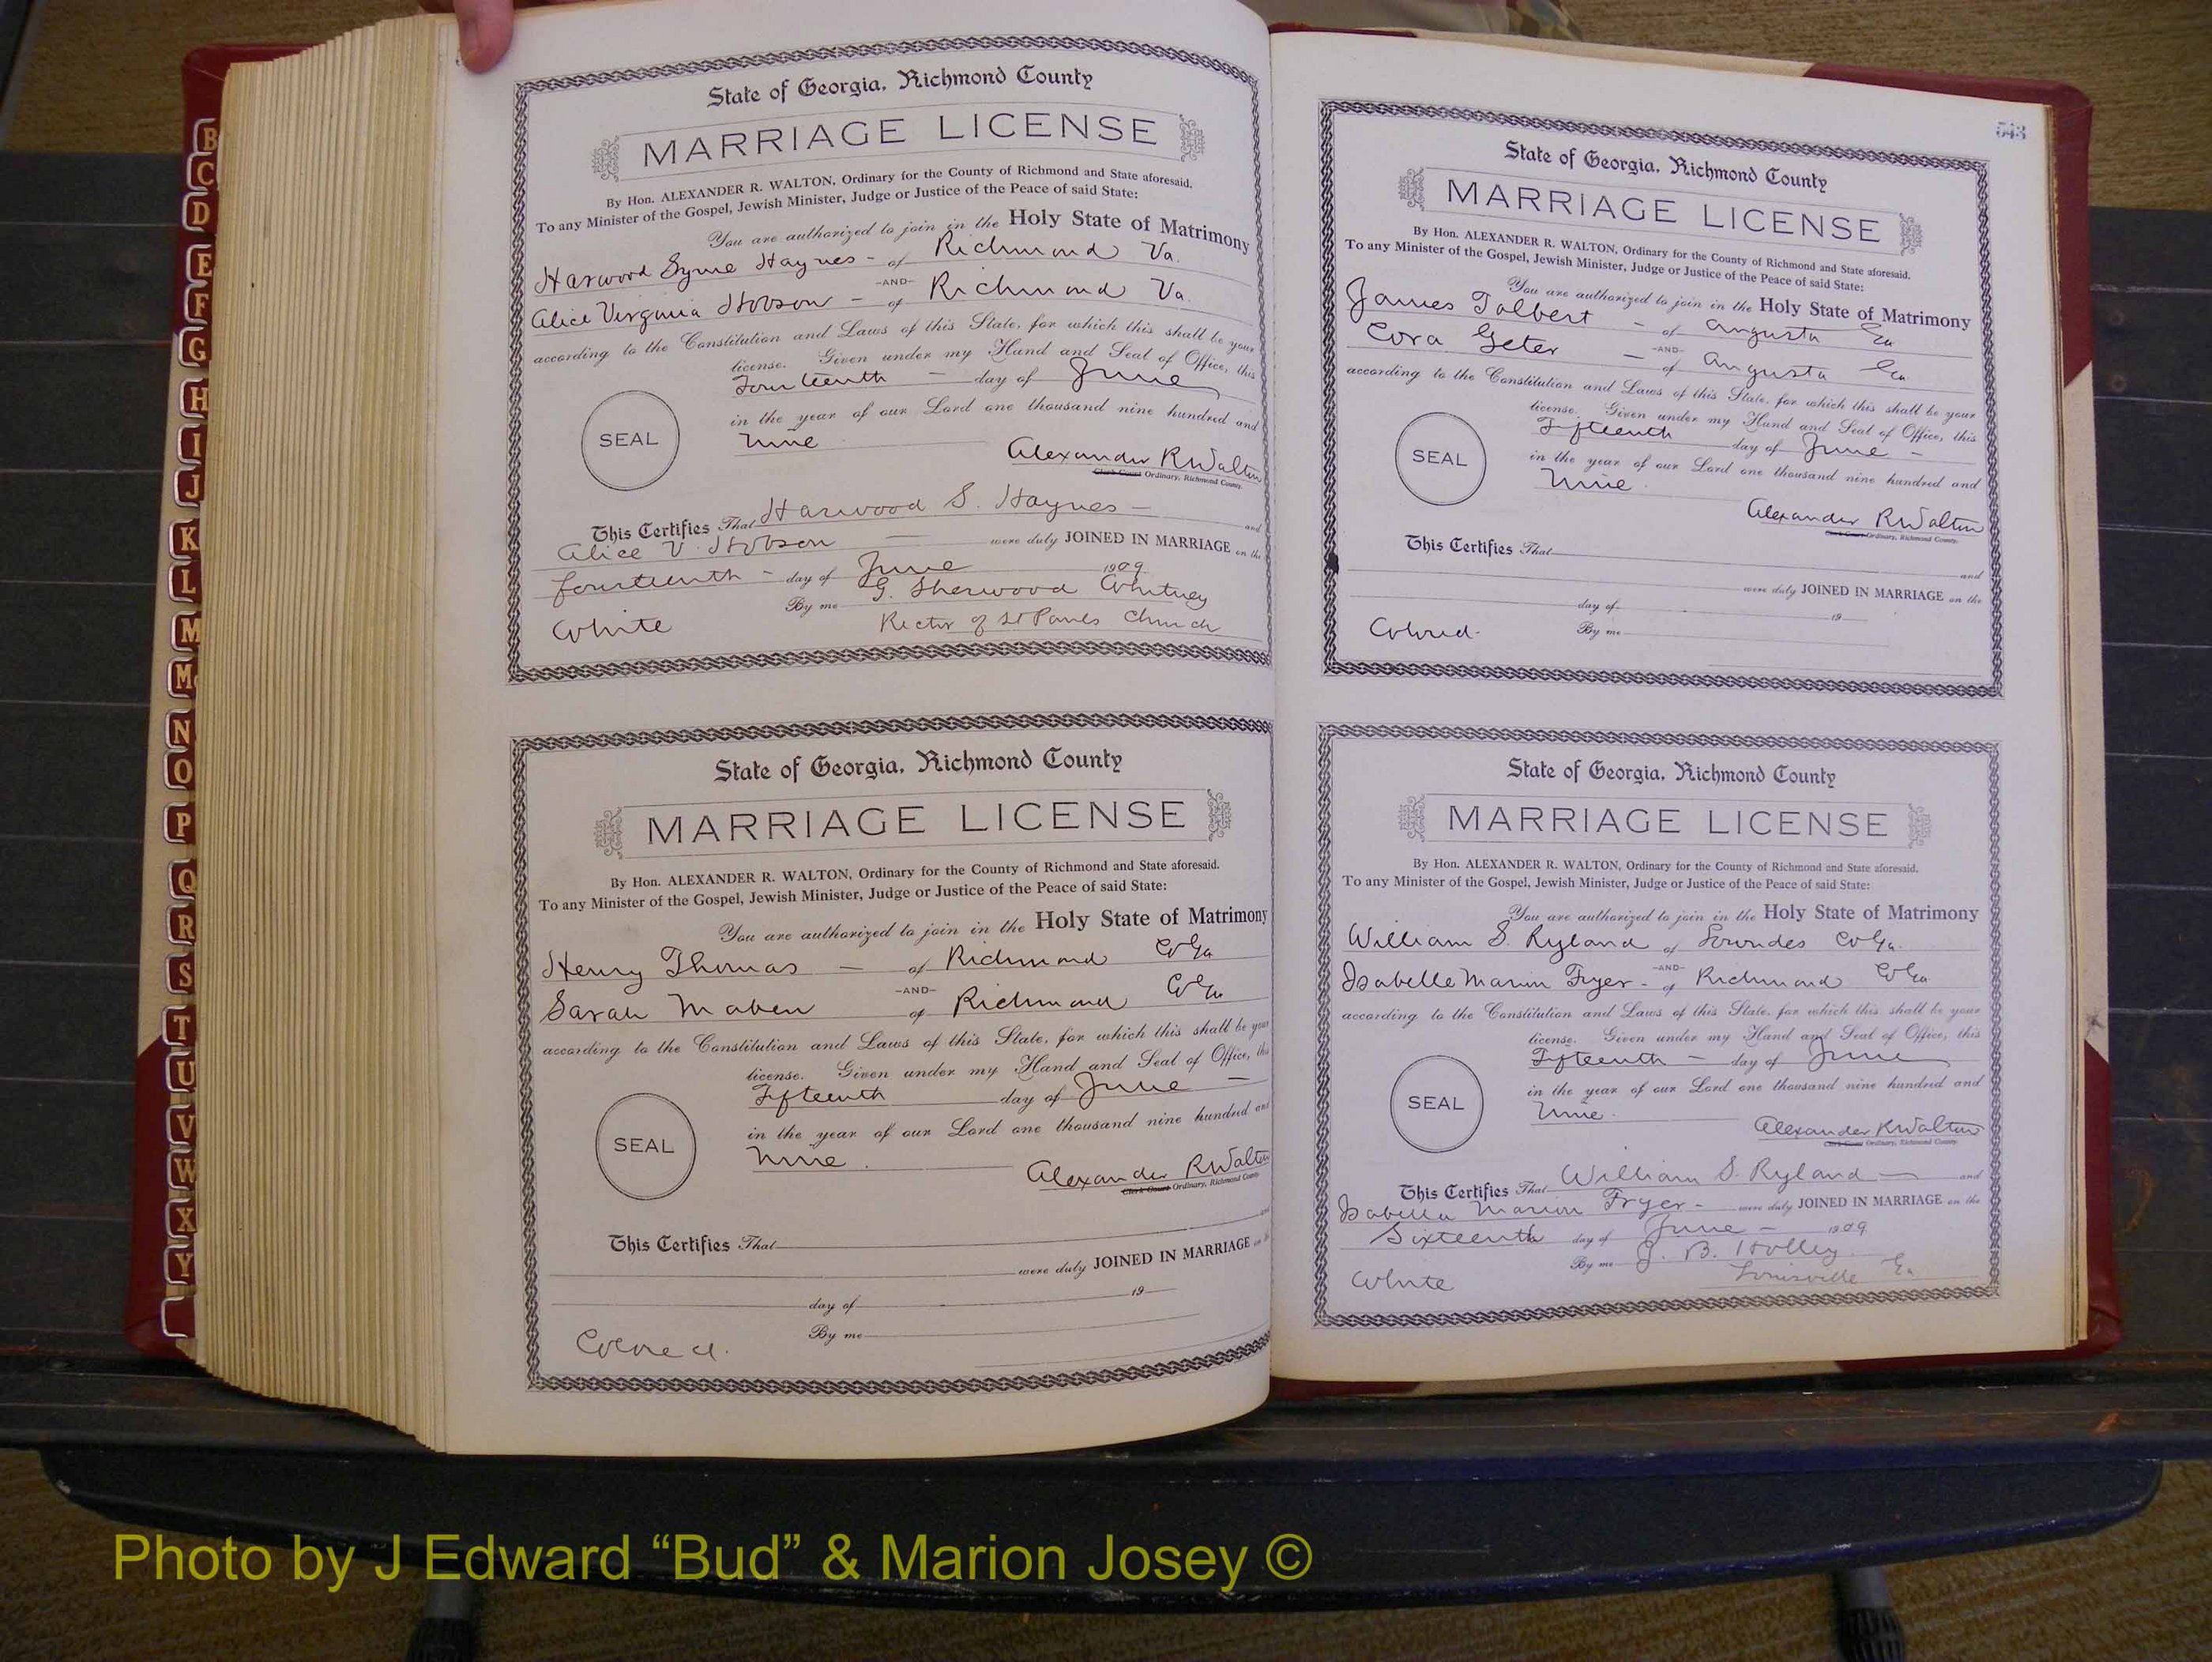 B
C
D
E
F
G
H
I
J
K
L
M
Mc
N
O
P
Q
R
S
T
U
V
W
X
Y
State of Georgia, Richmond County
MARRIAGE LICENSE
By Hon. ALEXANDER R. WALTON, Ordinary for the County of Richmond and State aforesaid.
To any Minister of the Gospel, Jewish Minister, Judge or Justice of the Peace of said State:
You are authorized to join in the Holy State of Matrimony
Harwood Syme Haynes - of Richmond Va.
-AND-
Alice Virginia Hobson - of Richmond Va.
according to the Constitution and Laws of this State, for which this shall be your
license. Given under my Hand and Seal of Office, this
Fourteenth - day of June
in the year of our Lord one thousand nine hundred and
SEAL
Nine
Alexander R Walton
Clerk Court Ordinary, Richmond County.
This Certifies That Harwood S. Haynes - and
Alice V. Hobson - were duly JOINED IN MARRIAGE on the
fourteenth - day of June 1909
By me G. Sherwood Whitney
White Rector of St Pauls Church
State of Georgia, Richmond County
MARRIAGE LICENSE
By Hon. ALEXANDER R. WALTON, Ordinary for the County of Richmond and State aforesaid.
To any Minister of the Gospel, Jewish Minister, Judge or Justice of the Peace of said State:
You are authorized to join in the Holy State of Matrimony
Henry Thomas - of Richmond Co Ga
-AND-
Sarah Maben of Richmond Co Ga
according to the Constitution and Laws of this State, for which this shall be your
license. Given under my Hand and Seal of Office, this
Fifteenth day of June -
in the year of our Lord one thousand nine hundred and
SEAL
Nine.
Alexander R Walton
Clerk Court Ordinary, Richmond County
This Certifies That and
were duly JOINED IN MARRIAGE on the
day of 19
By me
Colored.
543
State of Georgia, Richmond County
MARRIAGE LICENSE
By Hon. ALEXANDER R. WALTON, Ordinary for the County of Richmond and State aforesaid.
To any Minister of the Gospel, Jewish Minister, Judge or Justice of the Peace of said State:
You are authorized to join in the Holy State of Matrimony
James Tolbert - of Augusta Ga
-AND-
Cora Geter - of Augusta Ga.
according to the Constitution and Laws of this State, for which this shall be your
license. Given under my Hand and Seal of Office, this
Fifteenth day of June -
in the year of our Lord one thousand nine hundred and
SEAL
Nine.
Alexander R Walton
Clerk Court Ordinary, Richmond County.
This Certifies That
and
were duly JOINED IN MARRIAGE on the
day of 19
Colored. By me
State of Georgia, Richmond County
MARRIAGE LICENSE
By Hon. ALEXANDER R. WALTON, Ordinary for the County of Richmond and State aforesaid.
To any Minister of the Gospel, Jewish Minister, Judge or Justice of the Peace of said State:
You are authorized to join in the Holy State of Matrimony
William S. Ryland of Lowndes Co Ga.
-AND-
Isabelle Marion Fryer - of Richmond Co Ga
according to the Constitution and Laws of this State, for which this shall be your
license. Given under my Hand and Seal of Office, this
Fifteenth - day of June
in the year of our Lord one thousand nine hundred and
SEAL
Nine.
Alexander R Walton
Clerk Court Ordinary, Richmond County
This Certifies That William S. Ryland - and
Isabella Marion Fryer - were duly JOINED IN MARRIAGE on the
Sixteenth day of June - 1909
By me J. B. Holley.
White Louisville Ga
Photo by J Edward “Bud” & Marion Josey ©